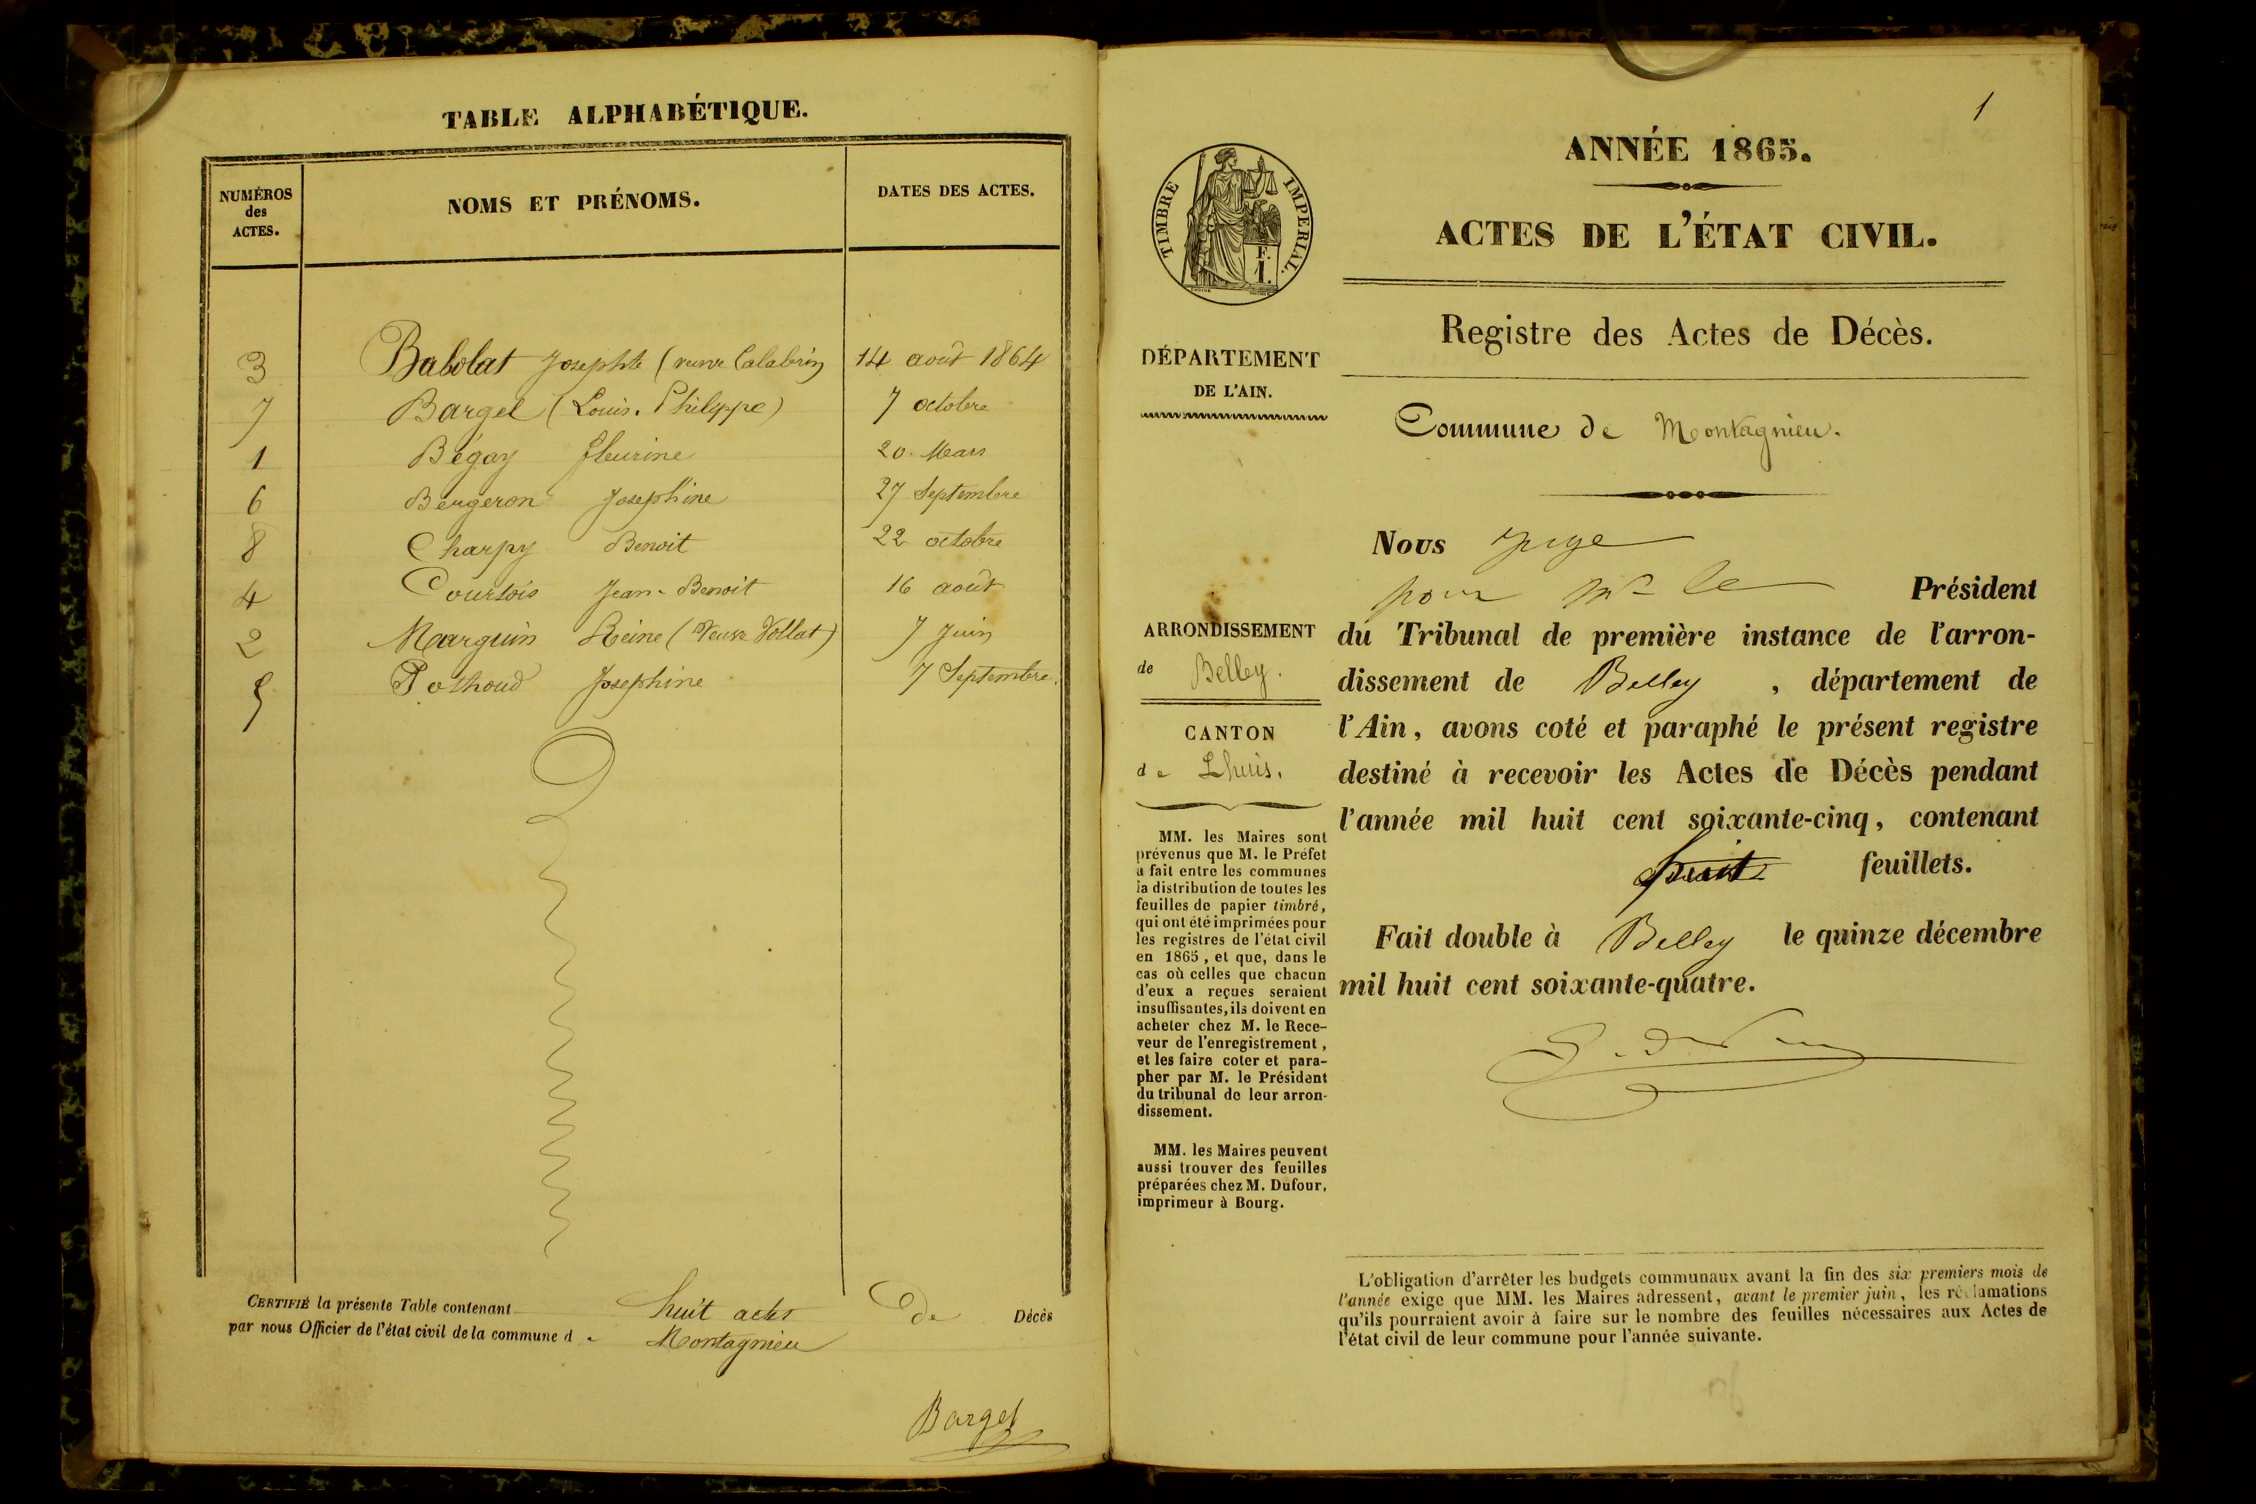 TABLE ALPHABÉTIQUE.
NUMÉROS des ACTES. NOMS ET PRÉNOMS. DATES DES ACTES.
3 Babolat Josephte (veuve Calabrin 14 août 1864
7 Bargel (Louis. Philippe) 7 octobre
1 Bégoy fleurine 20. Mars
6 Bergeron Josephine 27 Septembre
8 Charpy Benoit 22 octobre
4 Courtois Jean-Benoit 16 août
2 Marguin Reine (Veuve Vollat) 7 Juin
5 Pothoud Josephine 7 Septembre.
CERTIFIÉ la présente Table contenant huit actes de Décès
par nous Officier de l'état civil de la commune de Montagnieu
Bargel
1
TIMBRE IMPERIAL.
F.
1.
DÉPARTEMENT
DE L'AIN.
ARRONDISSEMENT
de Belley.
CANTON
de Lhuis.
MM. les Maires sont
prévenus que M. le Préfet
a fait entre les communes
la distribution de toutes les
feuilles de papier timbré,
qui ont été imprimées pour
les registres de l'état civil
en 1865, et que, dans le
cas où celles que chacun
d'eux a reçues seraient
insuffisantes, ils doivent en
acheter chez M. le Rece-
veur de l'enregistrement,
et les faire coter et para-
pher par M. le Président
du tribunal de leur arron-
dissement.
MM. les Maires peuvent
aussi trouver des feuilles
préparées chez M. Dufour,
imprimeur à Bourg.
ANNÉE 1865.
ACTES DE L'ÉTAT CIVIL.
Registre des Actes de Décès.
Commune de Montagnieu.
Nous juge
pour Mr le Président
du Tribunal de première instance de l'arron-
dissement de Belley, département de
l'Ain, avons coté et paraphé le présent registre
destiné à recevoir les Actes de Décès pendant
l'année mil huit cent soixante-cinq, contenant
huit feuillets.
Fait double à Belley le quinze décembre
mil huit cent soixante-quatre.
L'obligation d'arrêter les budgets communaux avant la fin des six premiers mois de
l'année exige que MM. les Maires adressent, avant le premier juin, les réclamations
qu'ils pourraient avoir à faire sur le nombre des feuilles nécessaires aux Actes de
l'état civil de leur commune pour l'année suivante.